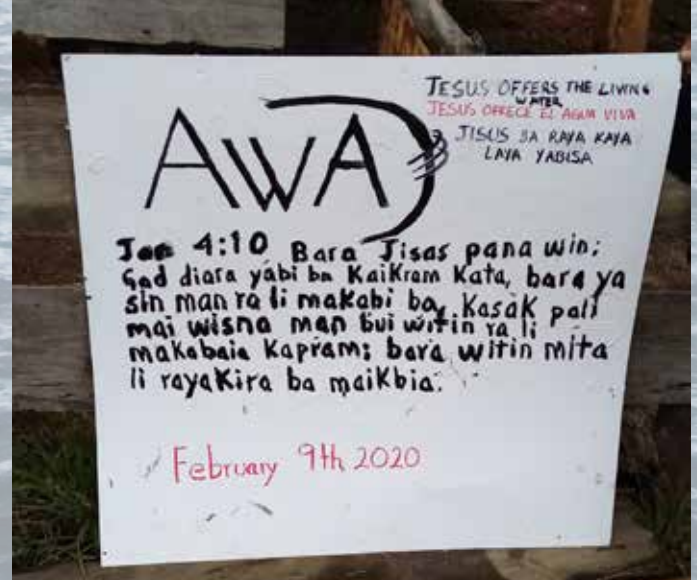 AWA
JESUS OFFERS THE LIVING
WATER
JESUS OFRECE EL AGUA VIVA
JISUS BA RAYA KAYA
LAYA YABISA
Jon 4:10 Bara Jisas pana win:
God diara yabi ba Kaikram Kata, bara ya
sin man ra li makabi ba, Kasak pali
mai wisna man bui witin ra li
makabaia Kapram; bara witin mita
li rayaKira ba maikbia.
February 9th 2020